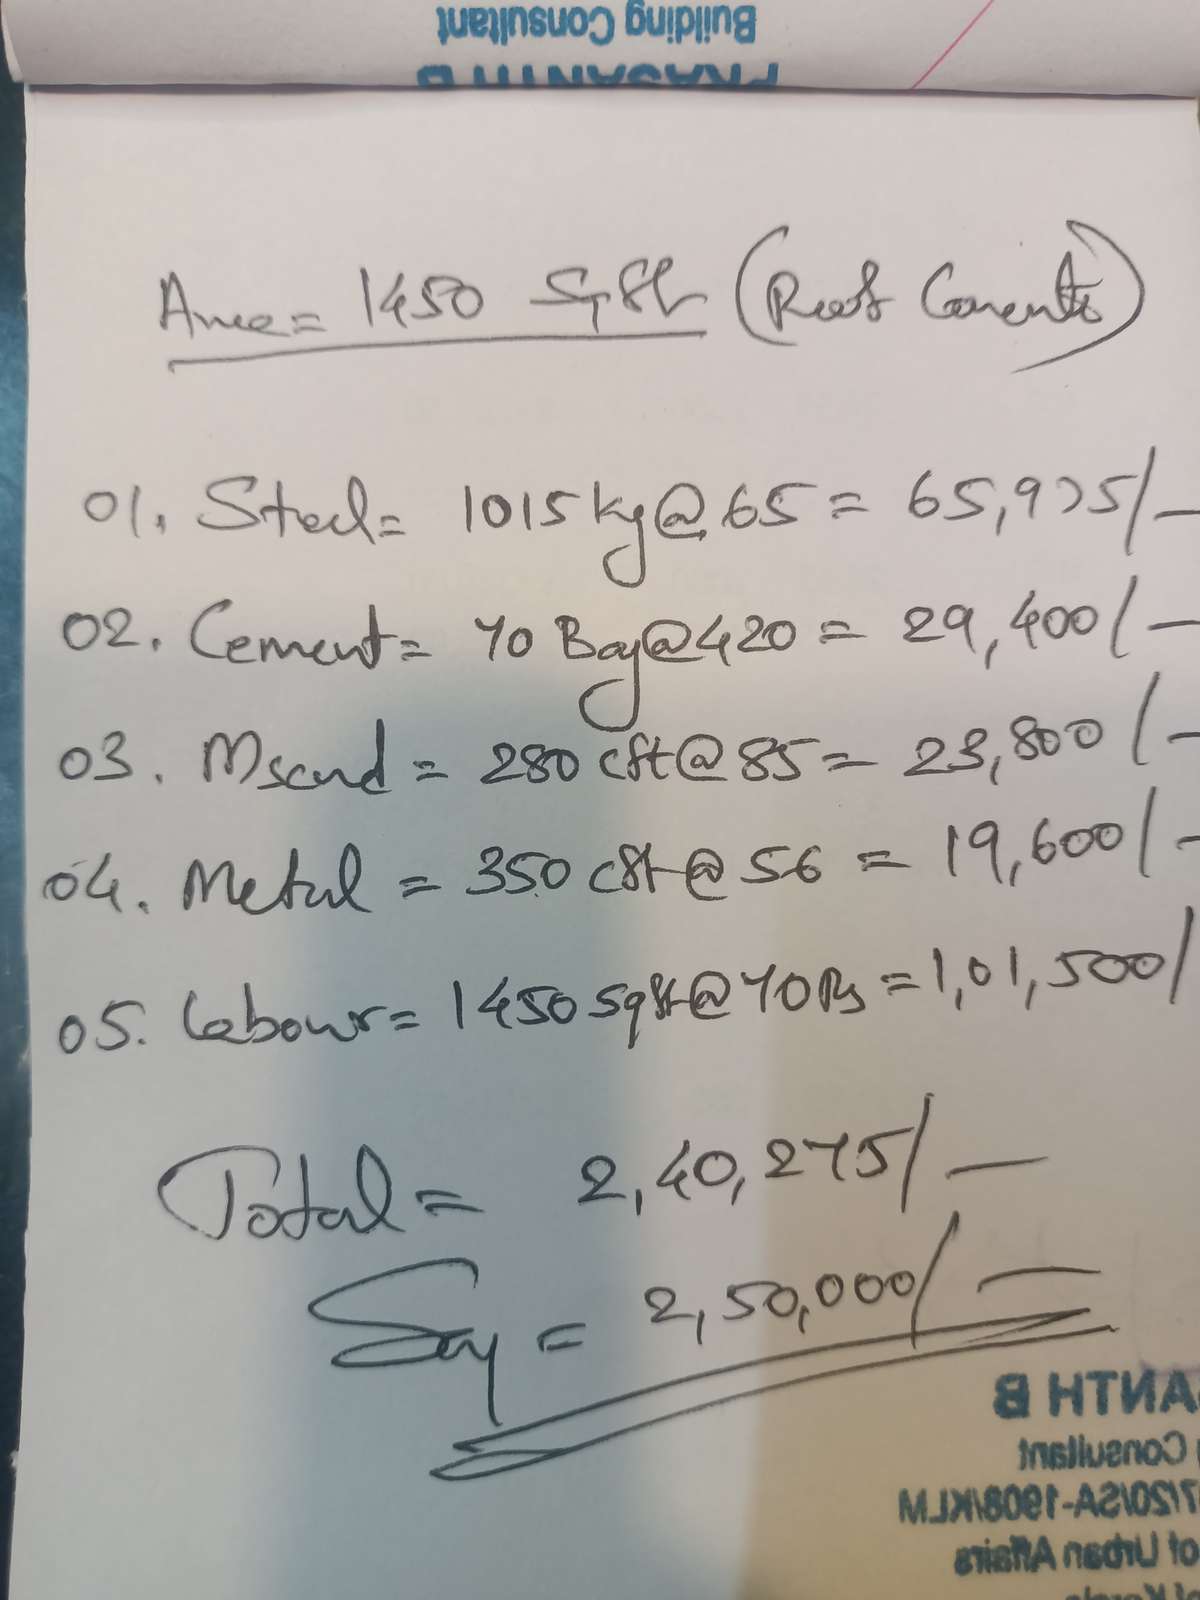 Building Consultant
PRASANTH B
Area = 1450 Sqft (Roof Concrete)
01. Steel = 1015 kg @ 65 = 65,975/-
02. Cement = 70 Bag @ 420 = 29,400/-
03. Msand = 280 cft @ 85 = 23,800/-
04. Metal = 350 cft @ 56 = 19,600/-
05. Labour = 1450 Sqft @ 70 Rs = 1,01,500/
Total = 2,40,275/-
Say = 2,50,000/-
ANTH B
Consultant
7/20/SA-1908/KLM
of Urban Affairs